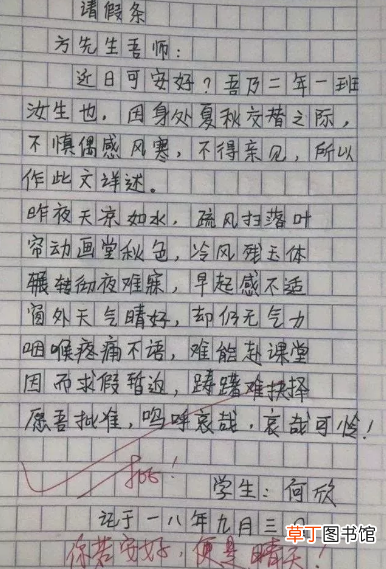 请假条
方先生吾师：
近日可安好？吾乃二年一班
汝生也，因身处夏秋交替之际，
不慎偶感风寒，不得亲见，所以
作此文详述。
昨夜天凉如水，疏风扫落叶
帘动画堂秋色，冷风残玉体
辗转彻夜难寐，早起感不适
窗外天气晴好，却仍无气力
咽喉疼痛不语，难能赴课堂
因而求假暂迫，踌躇难抉择
愿吾批准，呜呼哀哉，哀哉可怜！
批！
学生：何欣
记于一八年九月三日
你若安好，便是晴天！
草丁图书馆